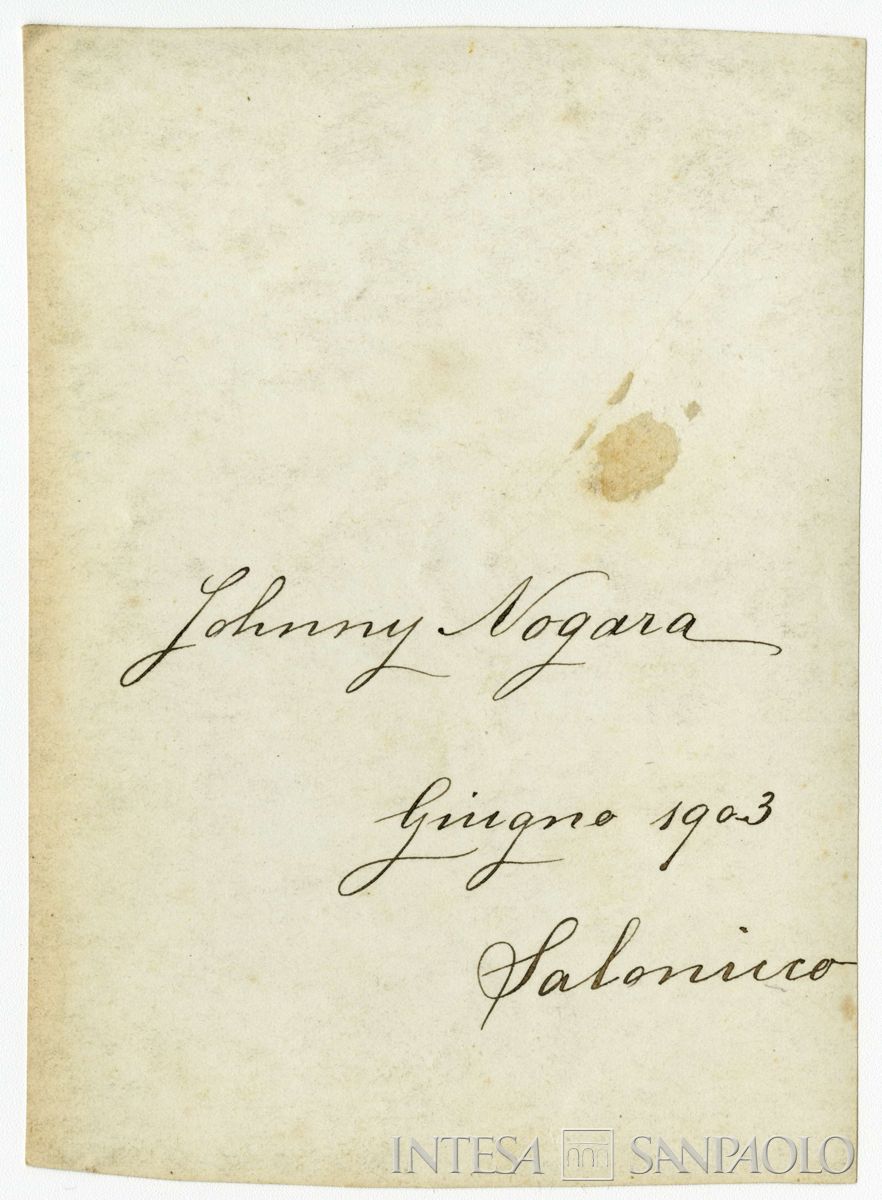 Johnny Nogara
Giugno 1903
Salonicco
INTESA SANPAOLO